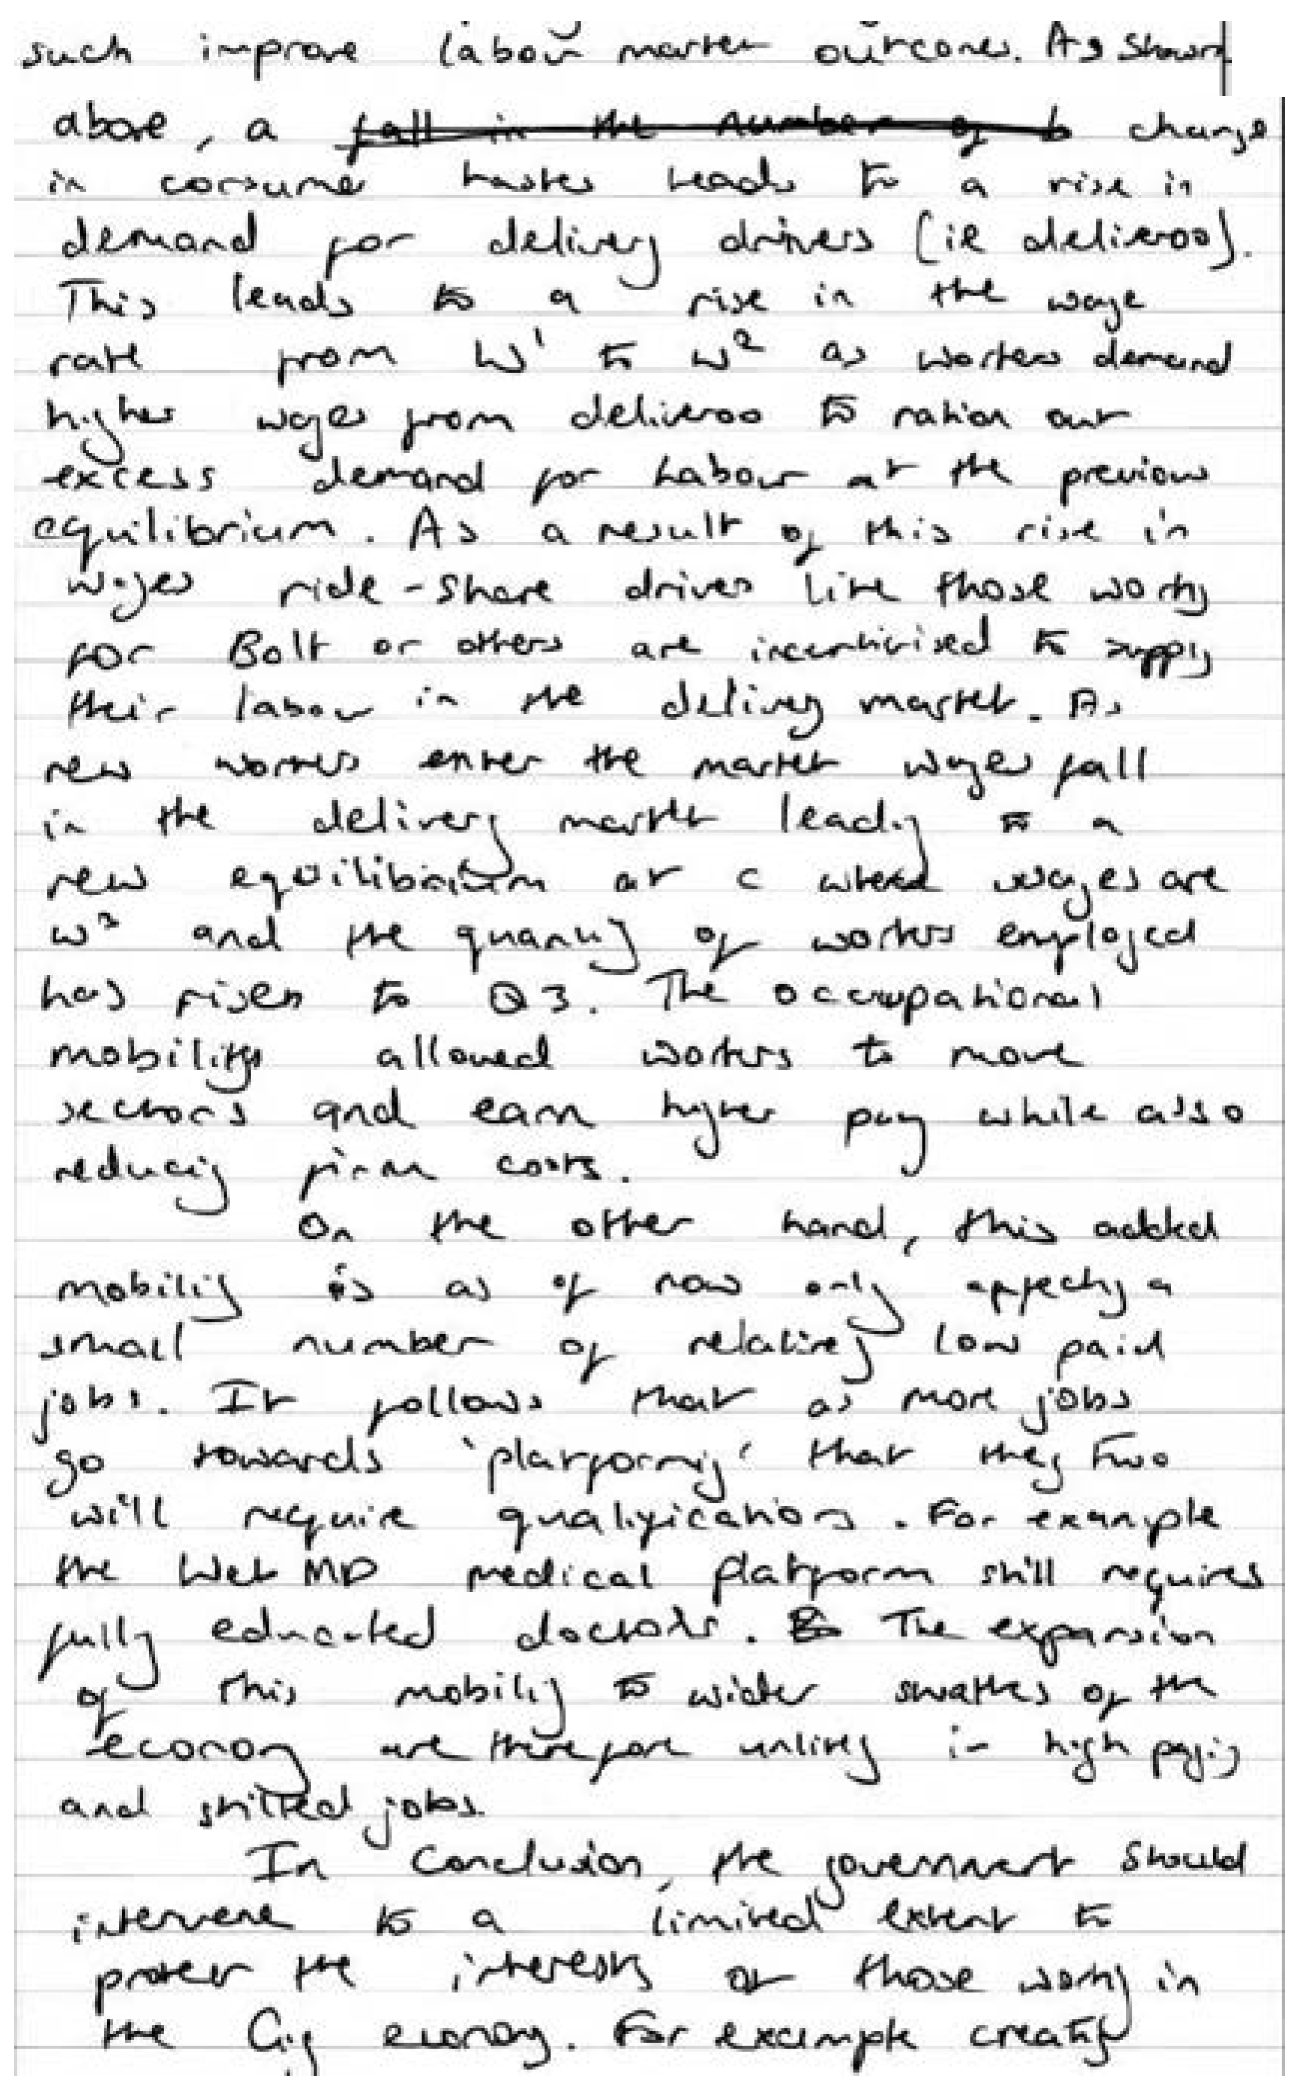 such improve labour market outcomes. As shown
above, a fall in the number of b change
in consumer tastes leads to a rise in
demand for delivery drivers (ie deliveroo).
This leads to a rise in the wage
rate from W¹ to W² as workers demand
higher wages from deliveroo to ration out
excess demand for labour at the previous
equilibrium. As a result of this rise in
wages ride-share drivers like those working
for Bolt or others are incentivised to supply
their labour in the delivery market. As
new workers enter the market wages fall
in the delivery market leading to a
new equilibrium at c where wages are
w³ and the quantity of workers employed
has risen to Q3. The occupational
mobility allowed workers to move
sectors and earn higher pay while also
reducing firm costs.
On the other hand, this added
mobility is as of now only affecting a
small number of relatively low paid
jobs. It follows that as more jobs
go towards 'platforming' that they two
will require qualifications. For example
the Web MD medical platform still requires
fully educated doctors. The expansion
of this mobility to wider swathes of the
economy are therefore unlikely in high paying
and skilled jobs.
In conclusion, the government should
intervene to a limited extent to
protect the interests of those working in
the Gig economy. For example creating